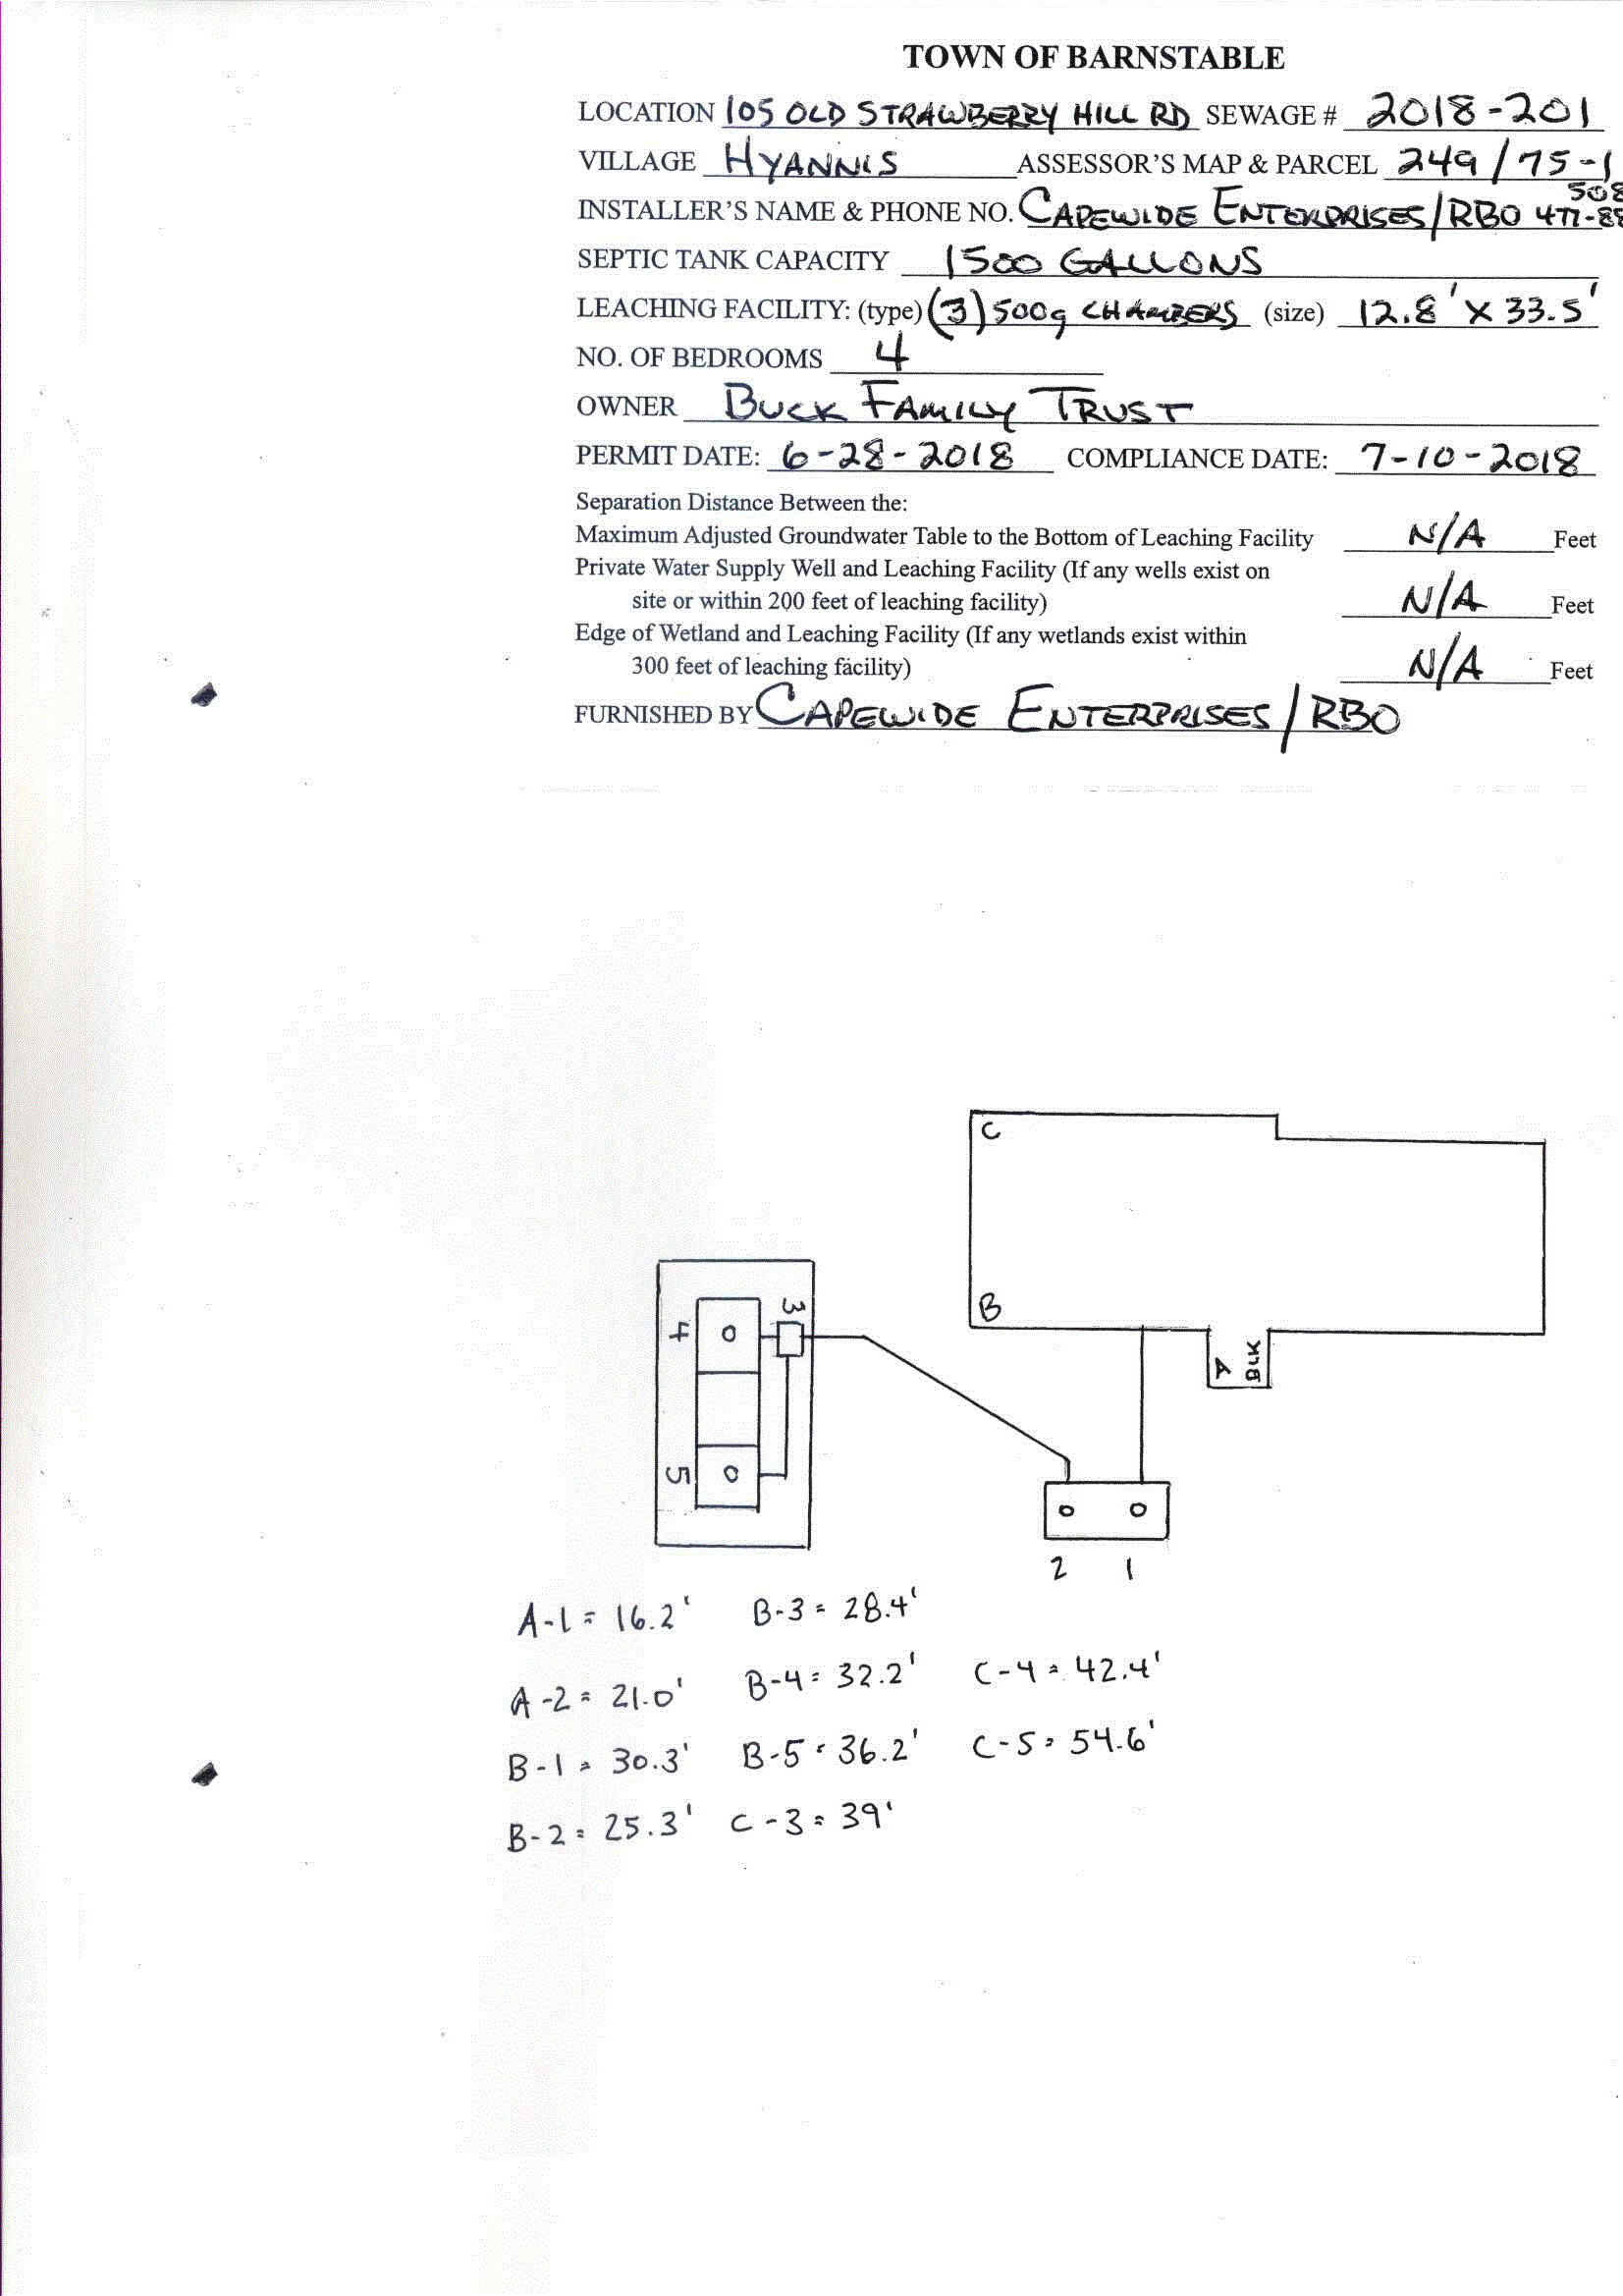 TOWN OF BARNSTABLE
LOCATION 105 OLD STRAWBERRY HILL RD SEWAGE # 2018-201
VILLAGE HYANNIS ASSESSOR'S MAP & PARCEL 249/75-1
508
INSTALLER'S NAME & PHONE NO. CAPEWIDE ENTERPRISES/RBO 477-88
SEPTIC TANK CAPACITY 1500 GALLONS
LEACHING FACILITY: (type) (3) 500g CHAMBERS (size) 12.8' X 33.5'
NO. OF BEDROOMS 4
OWNER BUCK FAMILY TRUST
PERMIT DATE: 6-28-2018 COMPLIANCE DATE: 7-10-2018
Separation Distance Between the:
Maximum Adjusted Groundwater Table to the Bottom of Leaching Facility N/A Feet
Private Water Supply Well and Leaching Facility (If any wells exist on
site or within 200 feet of leaching facility) N/A Feet
Edge of Wetland and Leaching Facility (If any wetlands exist within
300 feet of leaching facility) N/A Feet
FURNISHED BY CAPEWIDE ENTERPRISES/RBO
C
B
3
4
A BLK
5
2 1
A-1 = 16.2' B-3 = 28.4'
A-2 = 21.0' B-4 = 32.2' C-4 = 42.4'
B-1 = 30.3' B-5 = 36.2' C-5 = 54.6'
B-2 = 25.3' C-3 = 39'